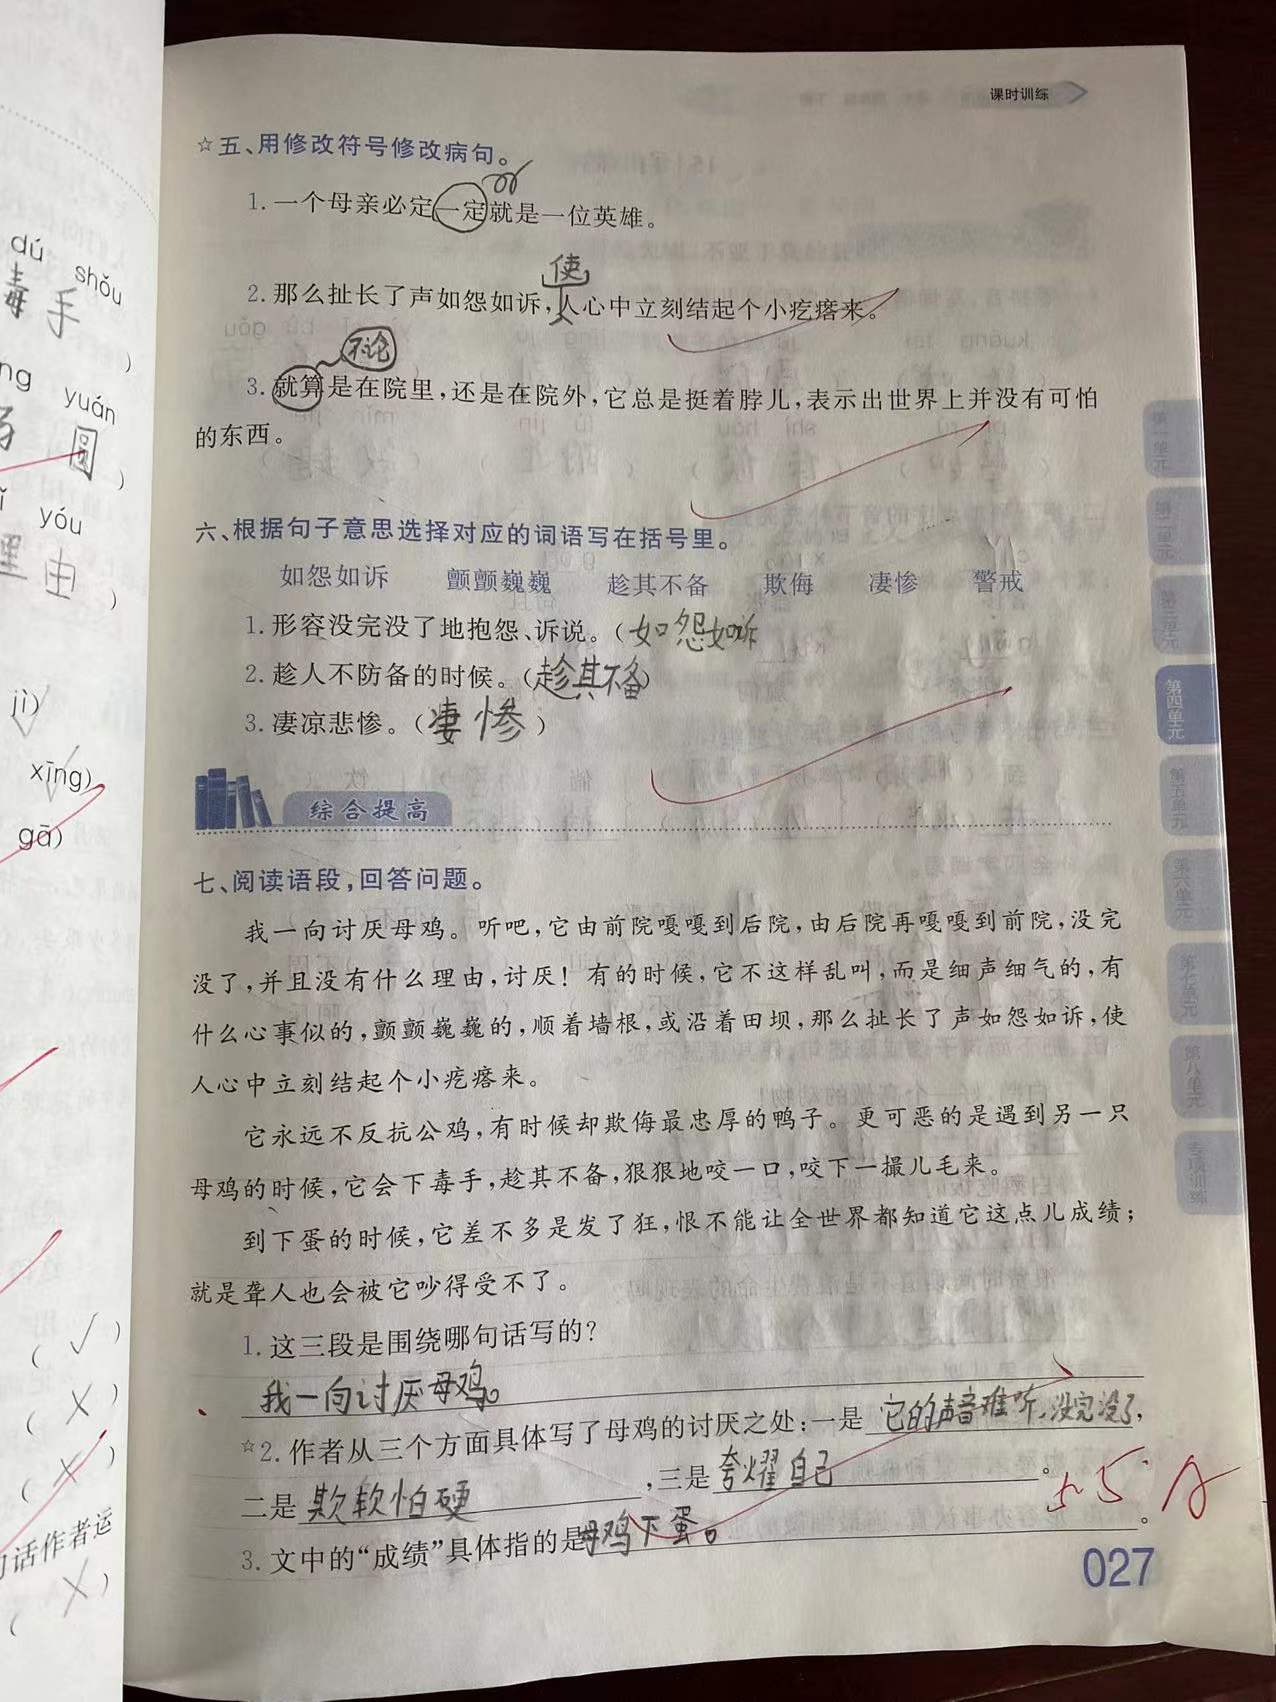 课时训练
☆五、用修改符号修改病句。
1. 一个母亲必定一定就是一位英雄。
使
2. 那么扯长了声如怨如诉，人心中立刻结起个小疙瘩来。
不论
3. 就算是在院里，还是在院外，它总是挺着脖儿，表示出世界上并没有可怕
的东西。
六、根据句子意思选择对应的词语写在括号里。
如怨如诉 颤颤巍巍 趁其不备 欺侮 凄惨 警戒
1. 形容没完没了地抱怨、诉说。（如怨如诉
2. 趁人不防备的时候。（趁其不备）
3. 凄凉悲惨。（凄惨）
综合提高
七、阅读语段，回答问题。
我一向讨厌母鸡。听吧，它由前院嘎嘎到后院，由后院再嘎嘎到前院，没完
没了，并且没有什么理由，讨厌！有的时候，它不这样乱叫，而是细声细气的，有
什么心事似的，颤颤巍巍的，顺着墙根，或沿着田坝，那么扯长了声如怨如诉，使
人心中立刻结起个小疙瘩来。
它永远不反抗公鸡，有时候却欺侮最忠厚的鸭子。更可恶的是遇到另一只
母鸡的时候，它会下毒手，趁其不备，狠狠地咬一口，咬下一撮儿毛来。
到下蛋的时候，它差不多是发了狂，恨不能让全世界都知道它这点儿成绩；
就是聋人也会被它吵得受不了。
1. 这三段是围绕哪句话写的？
我一向讨厌母鸡。
☆2. 作者从三个方面具体写了母鸡的讨厌之处：一是 它的声音难听、没完没了，
二是 欺软怕硬 ，三是 夸耀自己 。
3. 文中的“成绩”具体指的是母鸡下蛋。 。
027
第一单元
第二单元
第三单元
第四单元
第五单元
第六单元
第七单元
第八单元
专项训练
dú shǒu
毒手）
yuán
圆）
yóu
理由）
jì）
xīng）
gā）
（√）
（×）
（×）
话作者运
（×）